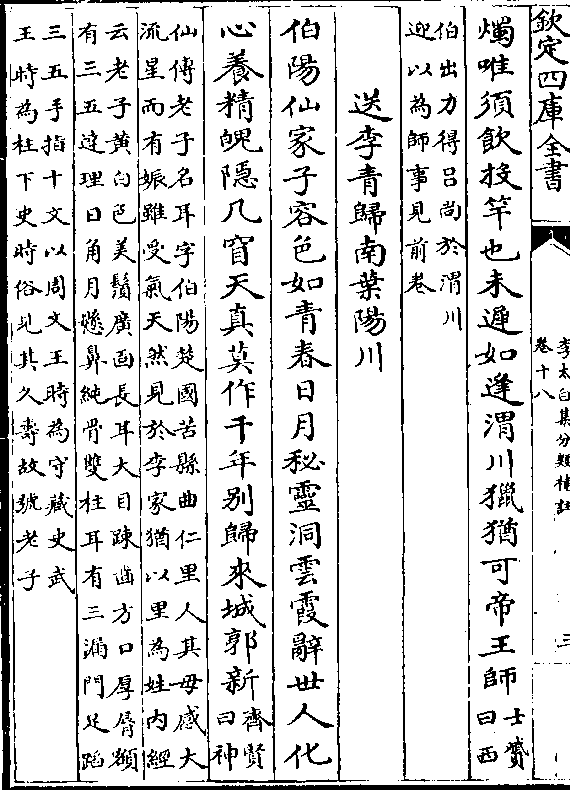 欽定四庫全書
李太白集分類補註
卷十八
三
燭唯須飲投竿也未遲如逢渭川獵猶可帝王師
士贇
曰西
伯出力得呂尚於渭川
迎以為師事見前卷
送李青歸南葉陽川
伯陽仙家子容色如青春日月秘靈洞雲霞辭世人化
心養精魄隠几窅天真莫作千年别歸來城郭新
齊賢
曰神
仙傳老子名耳字伯陽楚國苦縣曲仁里人其母感大
流星而有娠雖受氣天然見於李家猶以里為姓内經
云老子黄白色美鬚廣面長耳大目踈齒方口厚脣額
有三五達理日角月懸鼻純骨雙柱耳有三漏門足蹈
三五手指十文以周文王時為守藏史武
王時為柱下史時俗見其久壽故號老子